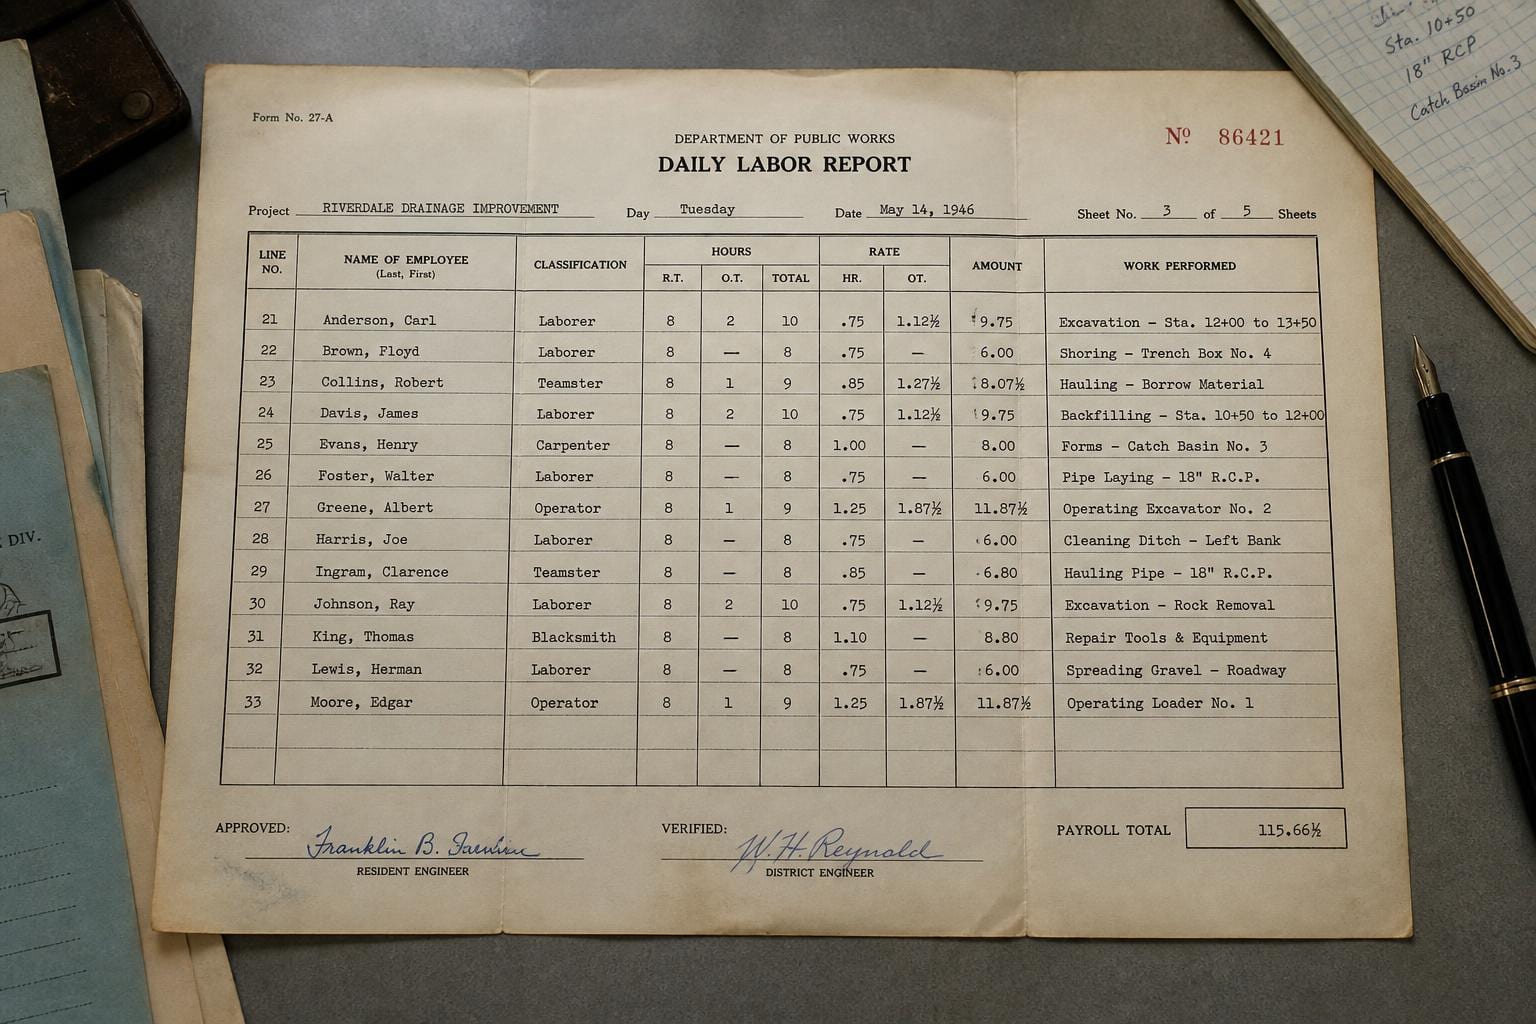 Sta. 10+50
18" RCP
Catch Basin No. 3
Form No. 27-A
DEPARTMENT OF PUBLIC WORKS
Nº 86421
DAILY LABOR REPORT
Project RIVERDALE DRAINAGE IMPROVEMENT Day Tuesday Date May 14, 1946 Sheet No. 3 of 5 Sheets
LINE NO. NAME OF EMPLOYEE (Last, First) CLASSIFICATION HOURS R.T. O.T. TOTAL RATE HR. OT. AMOUNT WORK PERFORMED
21 Anderson, Carl Laborer 8 2 10 .75 1.12½ 9.75 Excavation – Sta. 12+00 to 13+50
22 Brown, Floyd Laborer 8 — 8 .75 — 6.00 Shoring – Trench Box No. 4
23 Collins, Robert Teamster 8 1 9 .85 1.27½ 8.07½ Hauling – Borrow Material
24 Davis, James Laborer 8 2 10 .75 1.12½ 9.75 Backfilling – Sta. 10+50 to 12+00
25 Evans, Henry Carpenter 8 — 8 1.00 — 8.00 Forms – Catch Basin No. 3
26 Foster, Walter Laborer 8 — 8 .75 — 6.00 Pipe Laying – 18" R.C.P.
27 Greene, Albert Operator 8 1 9 1.25 1.87½ 11.87½ Operating Excavator No. 2
28 Harris, Joe Laborer 8 — 8 .75 — 6.00 Cleaning Ditch – Left Bank
29 Ingram, Clarence Teamster 8 — 8 .85 — 6.80 Hauling Pipe – 18" R.C.P.
30 Johnson, Ray Laborer 8 2 10 .75 1.12½ 9.75 Excavation – Rock Removal
31 King, Thomas Blacksmith 8 — 8 1.10 — 8.80 Repair Tools & Equipment
32 Lewis, Herman Laborer 8 — 8 .75 — 6.00 Spreading Gravel – Roadway
33 Moore, Edgar Operator 8 1 9 1.25 1.87½ 11.87½ Operating Loader No. 1
APPROVED: Franklin B. VERIFIED: W. H. Reynold PAYROLL TOTAL 115.66½
RESIDENT ENGINEER DISTRICT ENGINEER
DIV.